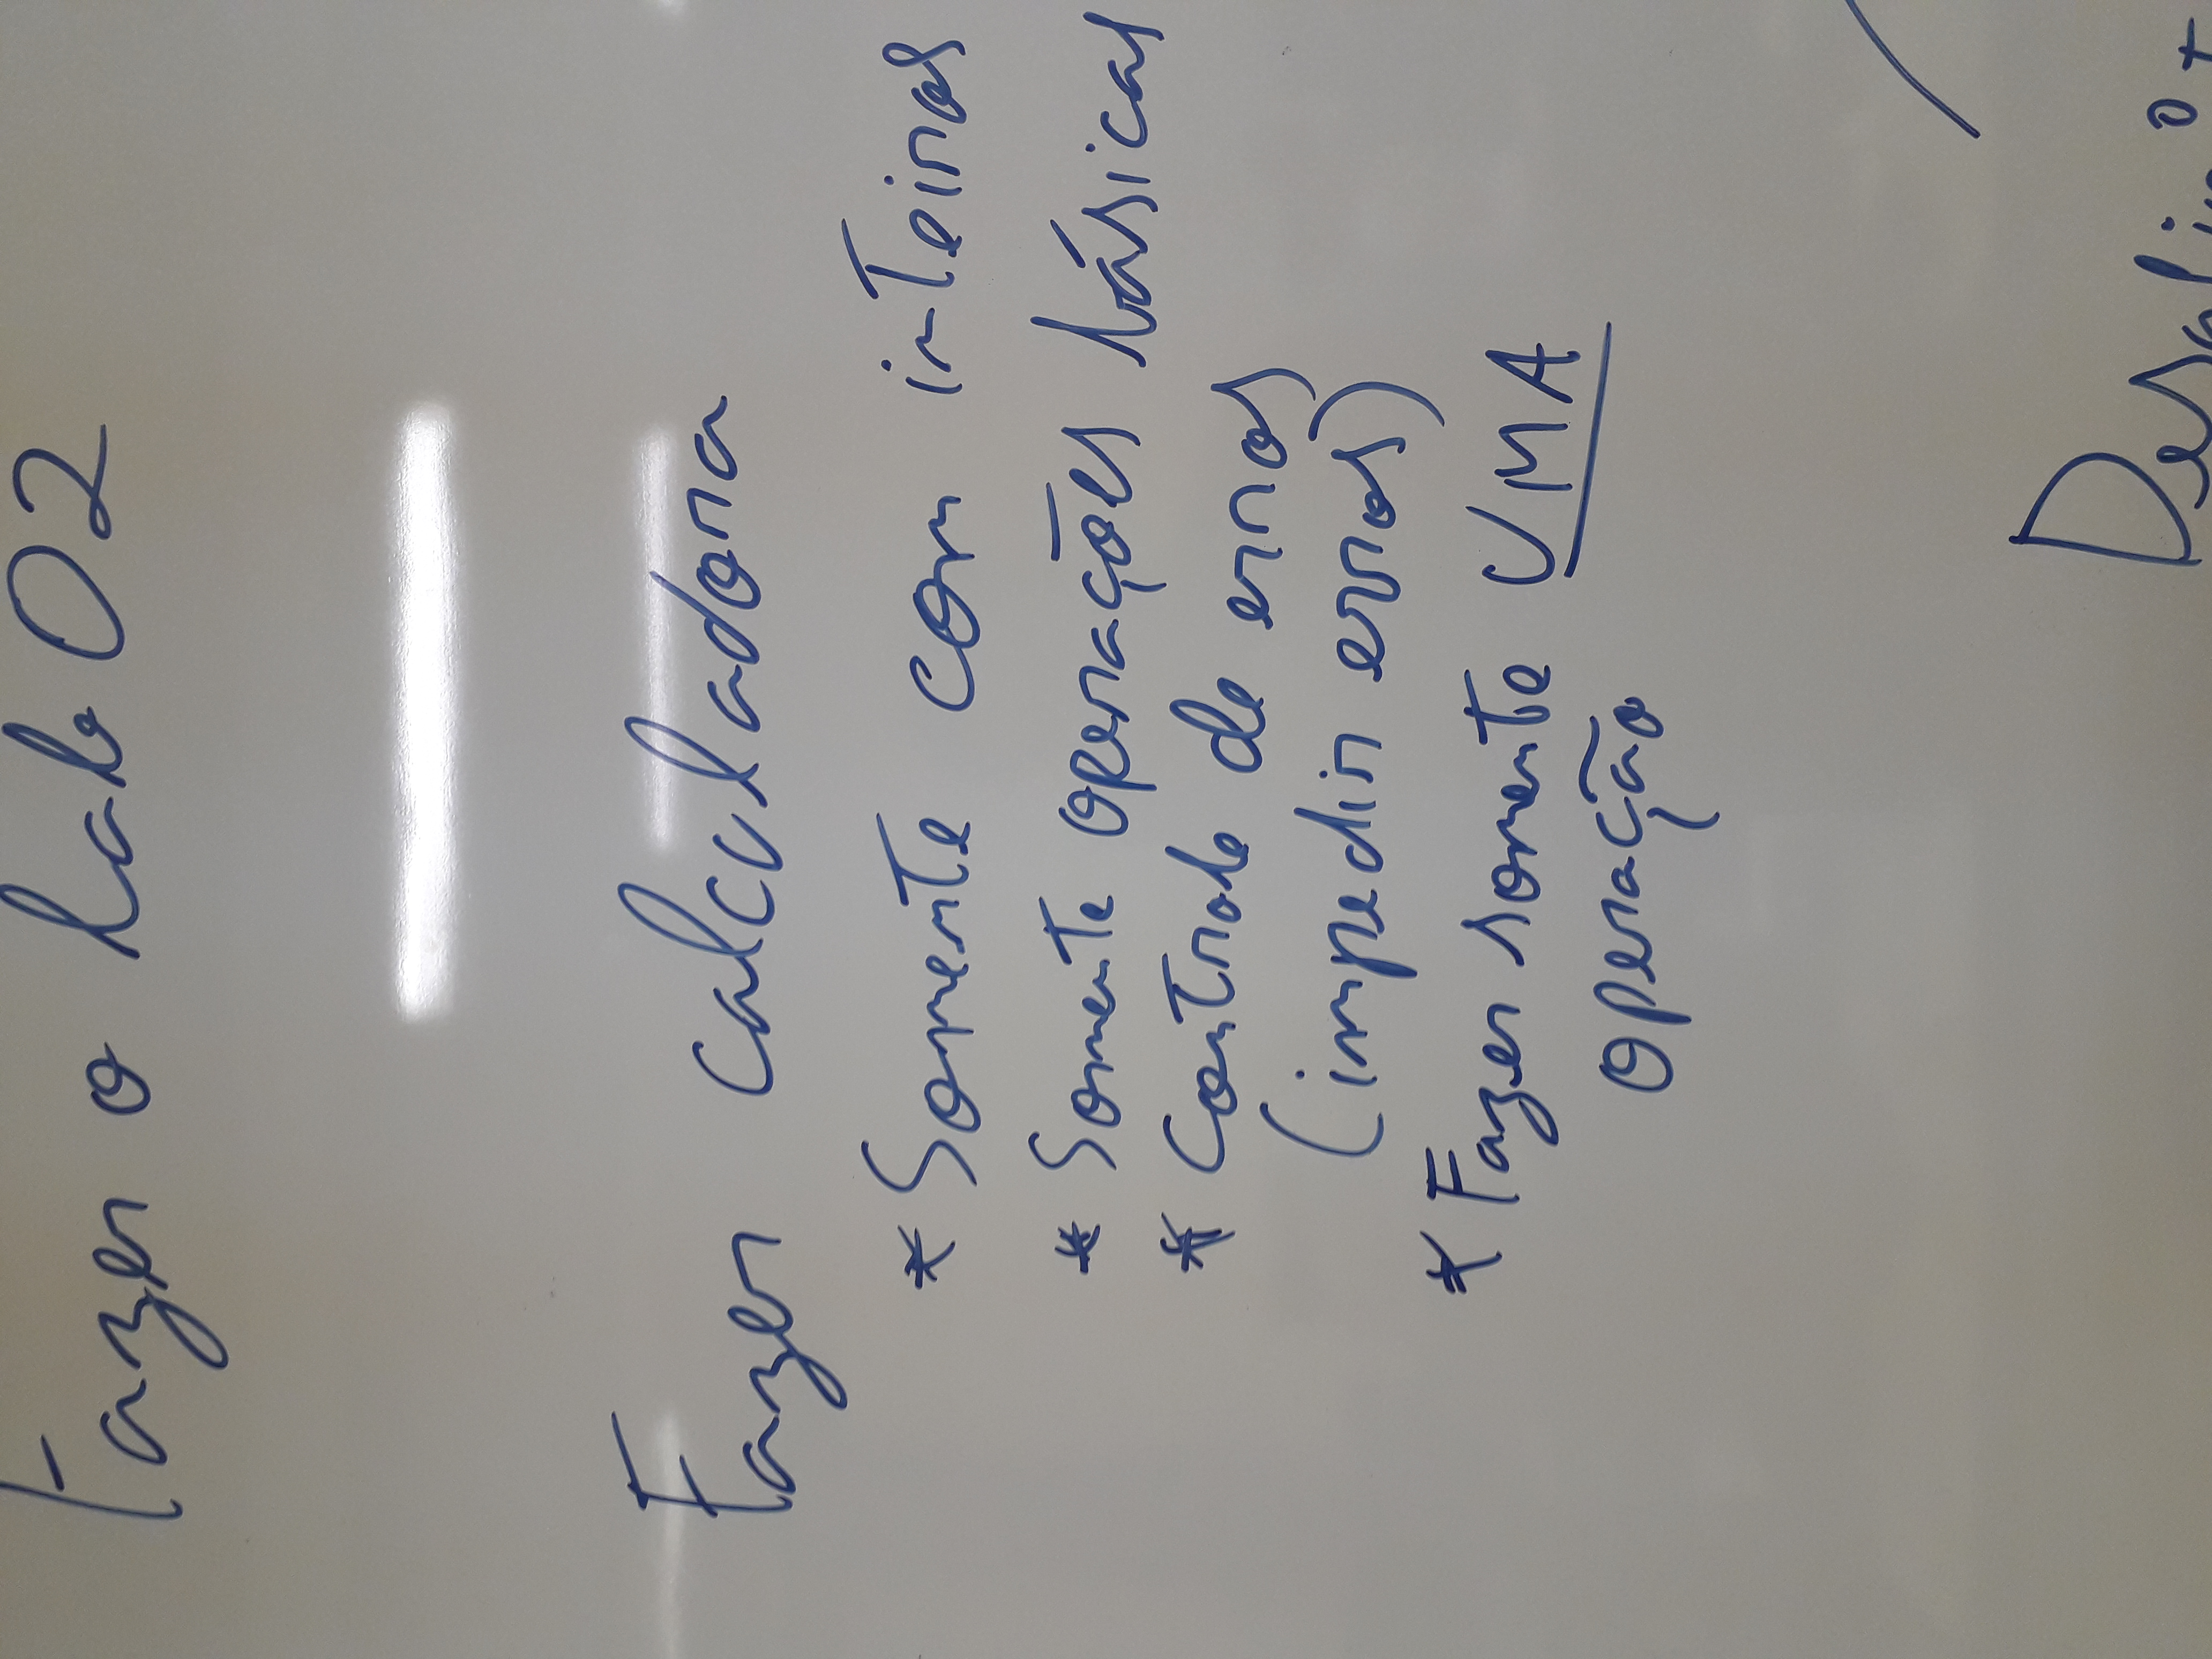 Fazer o lab 02
Fazer calculadora
* Somente com inteiros
* Somente operações básicas
* Controle de erros
(impedir erros)
* Fazer somente UMA
operação